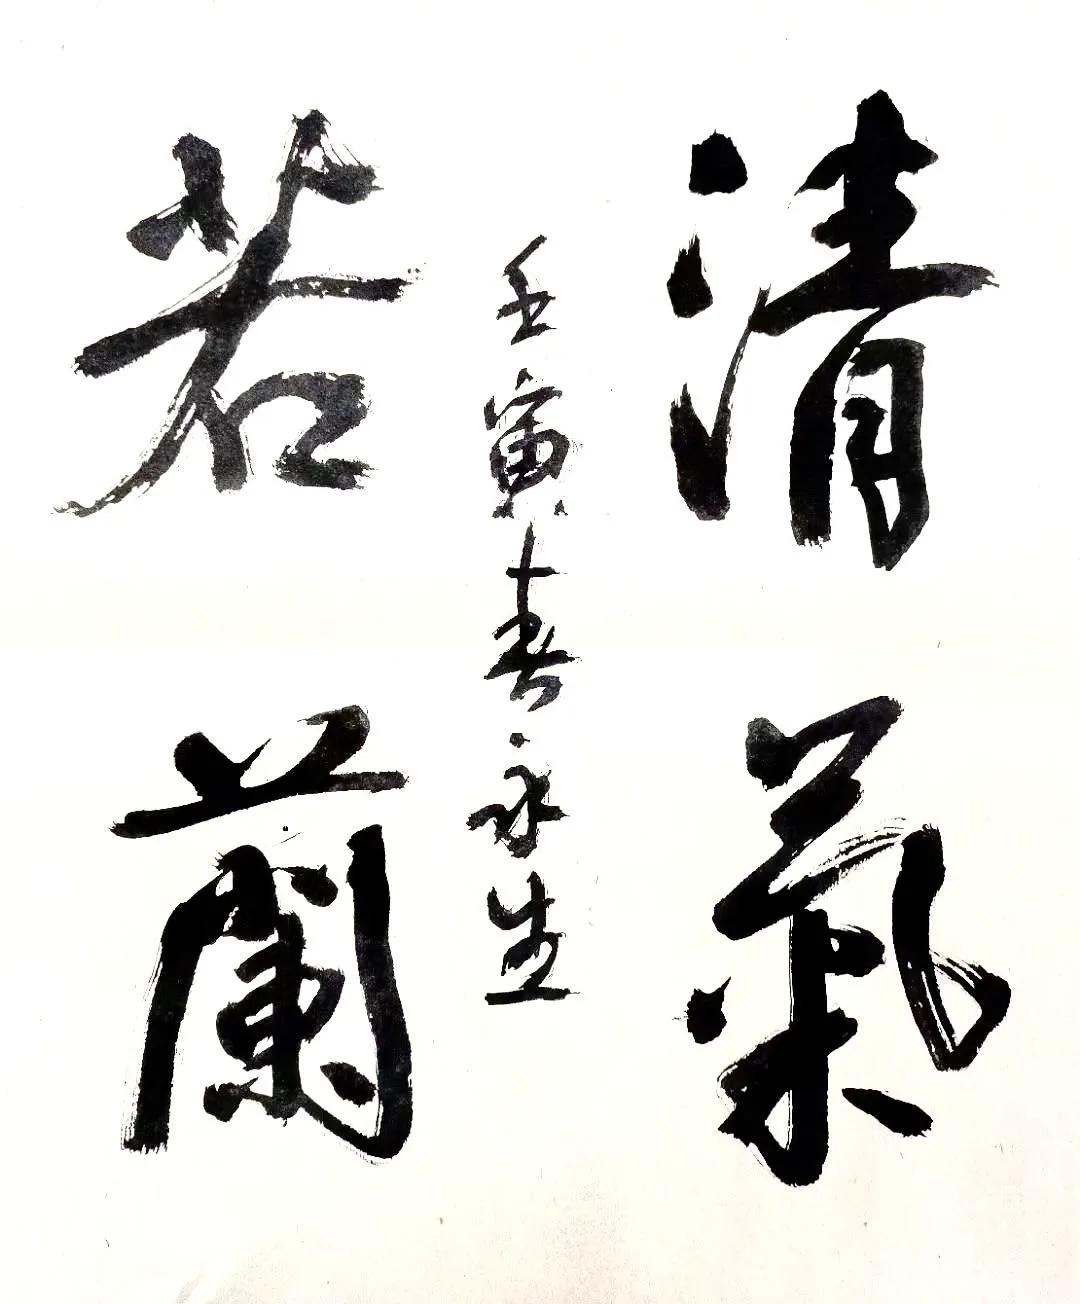 清氣
若蘭
壬寅春永生